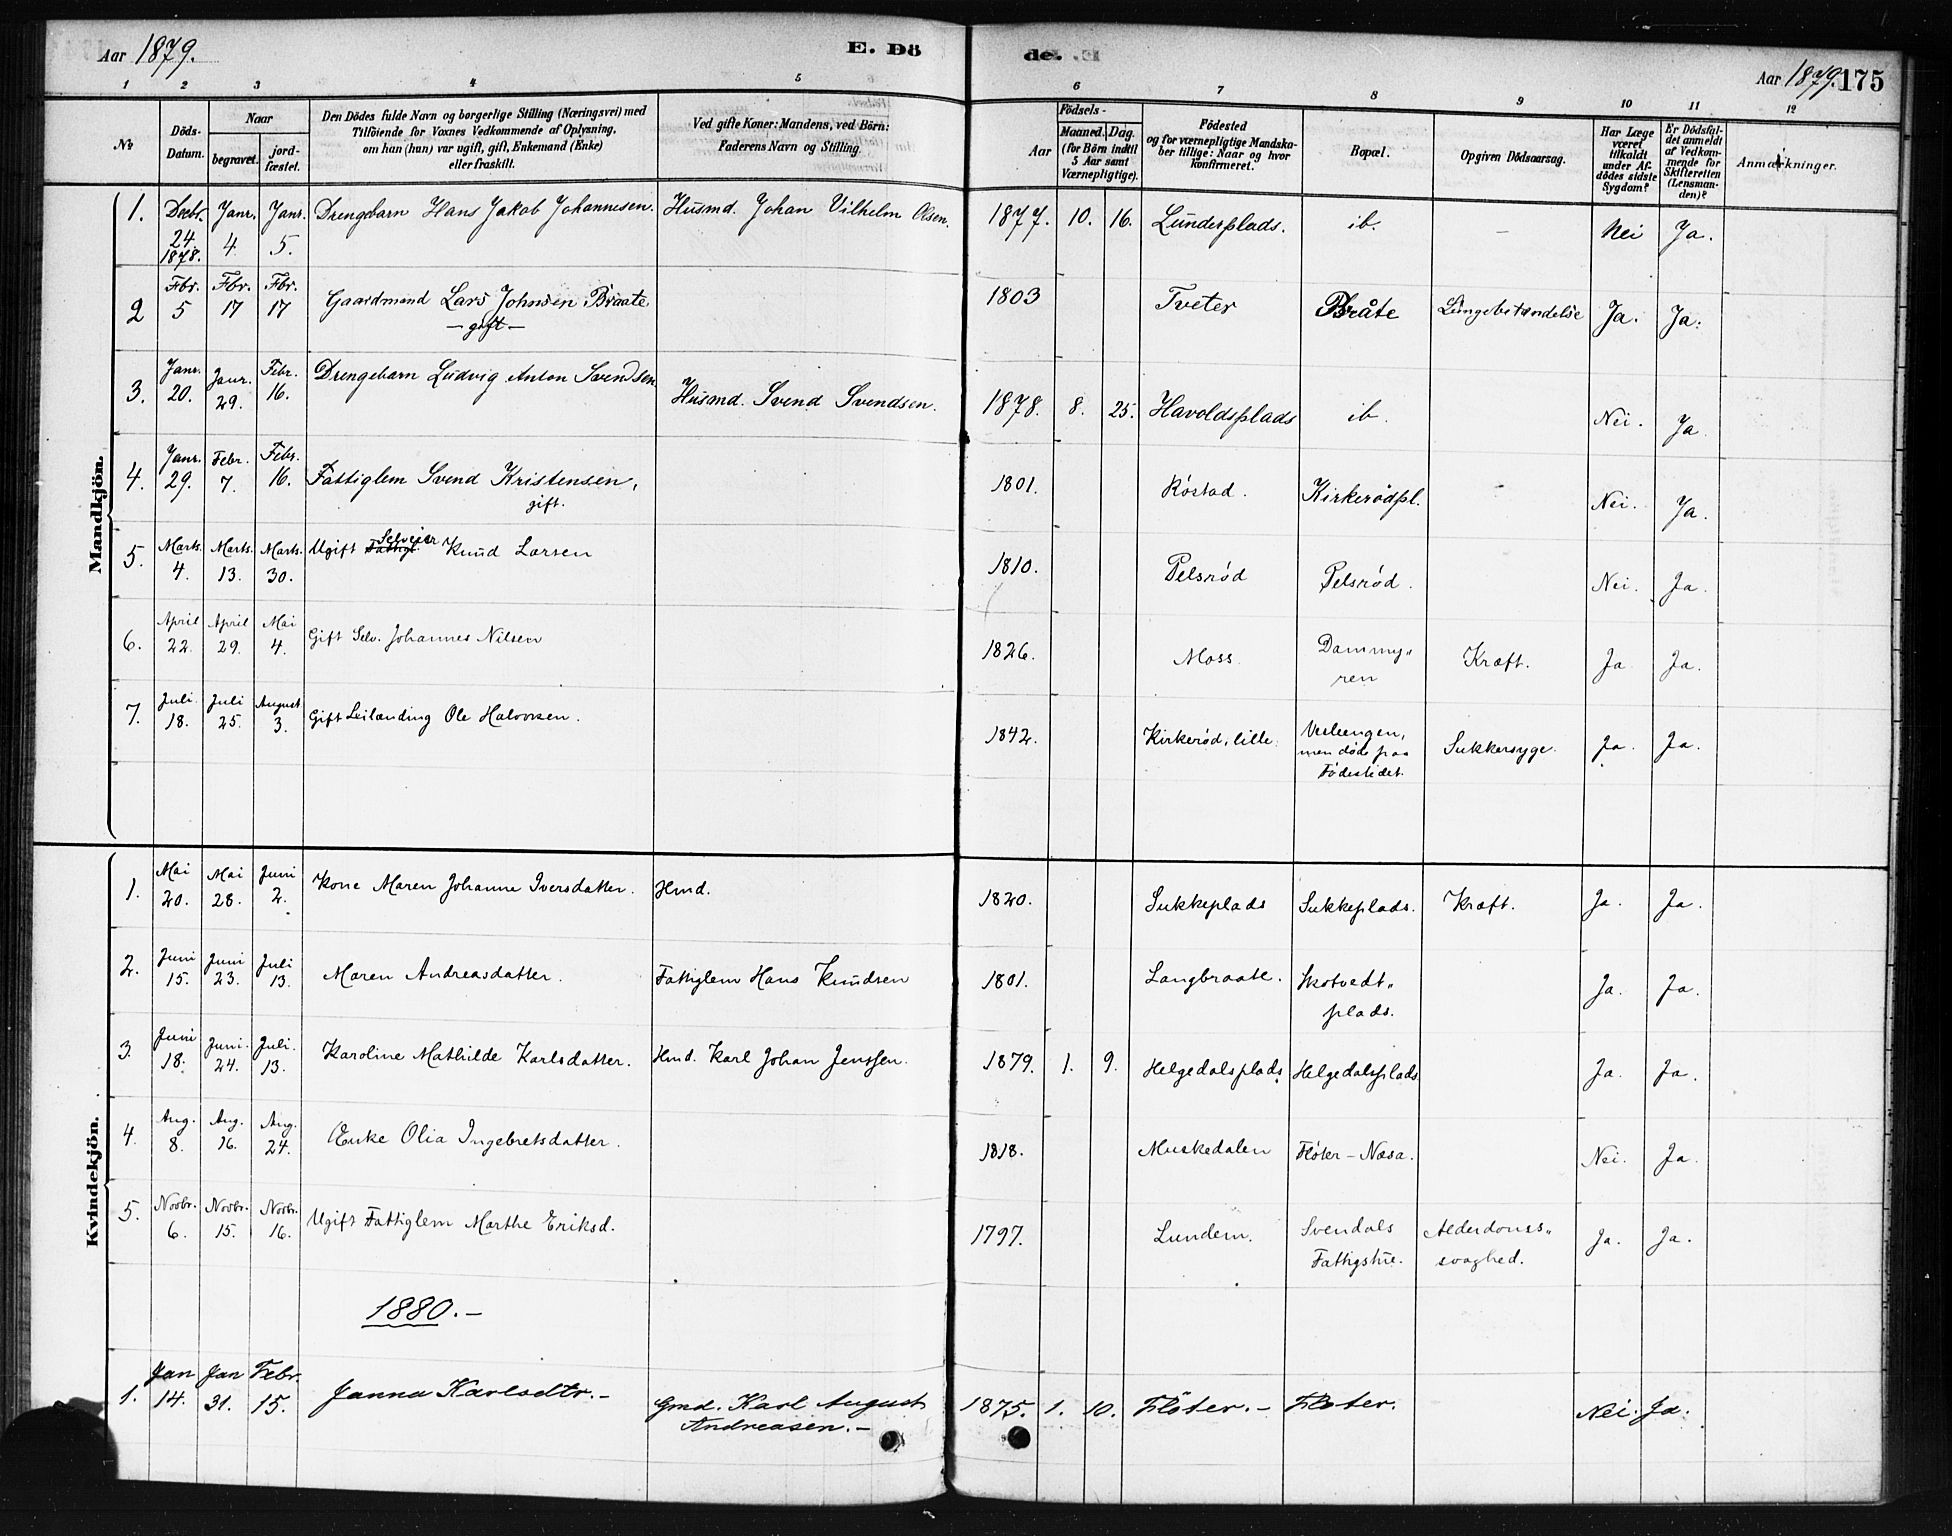 Aar 1879.
E. Dö
de.
Aar 1879.
175
1 2 3 4 5 6 7 8 9 10 11 12
No
Döds-Datum.
Naar
begravet.
jord-fæstet.
Den Dödes fulde Navn og borgerlige Stilling (Næringsvei) med
Tilföiende for Voxnes Vedkommende af Oplysning,
om han (hun) var ugift, gift, Enkemand (Enke)
eller fraskilt.
Ved gifte Koner: Mandens, ved Börn:
Faderens Navn og Stilling.
Födsels-
Aar
Maaned. Dag.
(for Börn indtil
5 Aar samt
Værnepligtige).
Födested
og for værnepligtige Mandska-
ber tillige: Naar og hvor
konfirmeret.
Bopæl.
Opgiven Dödsaarsag.
Har Læge
været
tilkaldt
under Af-
dödes sidste
Sygdom?
Er Dödsfal-
det anmeldt
af Vedkom-
mende for
Skifteretten
(Lensman-
den)?
Anmærkninger.
Mandkjön.
1. Decbr. 24. 1878. Janr. 4. Janr. 5. Drengebarn Hans Jakob Johannesen. Husmd. Johan Vilhelm Olsen. 1877. 10. 16. Lunderplads. ib. – Nei Ja.
2 Fbr. 5 Fbr. 17 Fbr. 17 Gaardmand Lars Johnsen Braate
– gift – 1803 Tveter Bråte Lungebetændelse Ja. Ja.
3. Janr. 20. Janr. 29. Febr. 16. Drengebarn Ludvig Anton Svendsen Husmd. Svend Svendsen. 1878. 8. 25. Havoldsplads ib. Nei. Ja.
4. Janr. 29. Febr. 7. Febr. 16. Fattiglem Svend Kristensen,
gift. 1801. Røstad. Kirkerødpl. Nei. Ja.
5. Marts. 4. Marts. 13. Marts. 30. Ugift Fattigl. Selveier Knud Larsen 1810. Pelsrød Pelsrød. Nei. Ja.
6. April 22. April 29. Mai 4. Gift Selv. Johannes Nilsen 1826. Moss. Dammy„
ren Kræft. Ja Ja.
7. Juli. 18. Juli 25. August 3. Gift Leilænding Ole Halvorsen. 1842. Kirkerød, lille. Vesleengen,
men døde paa
Fødestedet. Sukkersyge. Ja. Ja.
Kvindekjön.
1. Mai 20. Mai 28. Juni 2. Kone Maren Johanne Iversdatter. Hmd. 1820. Sukkeplads Sukkeplads. Kræft. Ja. Ja.
2. Juni 15. Juni 23. Juli 13. Maren Andreasdatter. Fattiglem Hans Knudsen 1801. Langbraate. Skotvedt„
plads. Ja. Ja.
3. Juni 18. Juni. 24. Juli. 13. Karoline Mathilde Karlsdatter. Hmd. Karl Johan Jenssen. 1879. 1. 9. Helgedalsplads Helgedalsplads Ja. Ja.
4. Aug. 8. Aug. 16. Aug. 24. Enke Olia Ingebretsdatter. 1818. Muskedalen Fløter – Næsa. Nei. Ja.
5. Novbr. 6. Novbr. 15. Novbr. 16. Ugift Fattiglem Marthe Eriksd. 1797. Lundem. Svendals
Fattigstue. Alderdoms„
svaghed. Ja. Ja.
1880. –
1. Jan 14. Jan 31. Febr. 15. Janna Karlsdtr. – Gmd. Karl August
Andreasen. – 1875. 1. 10. Fløter. – Fløter. Nei. Ja.